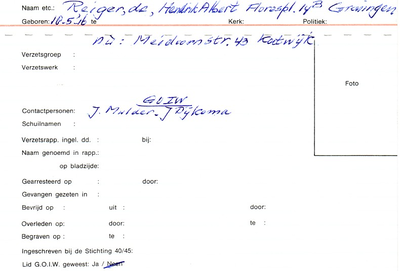 Naam etc.: Reiger, de, Hendrik Albert Florespl. 14B Groningen
Geboren: 10.5.16 te Kerk: Politiek:
nu: Meidoornstr. 43 Katwijk
Verzetsgroep :
Verzetswerk :
Foto
GOIW
Contactpersonen: J. Mulder - J Dijkema
Schuilnaam :
Verzetsrapp. ingel. dd. : bij:
Naam genoemd in rapp.:
op bladzijde:
Gearresteerd op : door:
Gevangen gezeten in :
Bevrijd op : uit : door:
Overleden op : door: te :
Begraven op : te :
Ingeschreven bij de Stichting 40/45:
Lid G.O.I.W. geweest: Ja / Neen